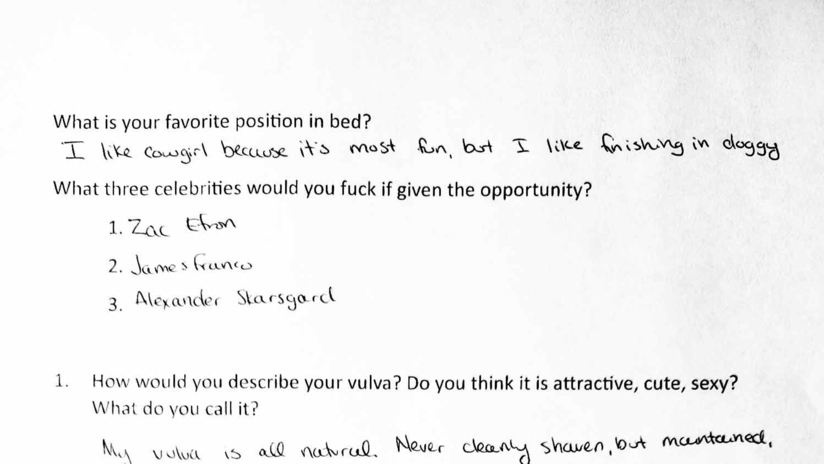 What is your favorite position in bed?
I like cowgirl because it's most fun, but I like finishing in doggy
What three celebrities would you fuck if given the opportunity?
1. Zac Efron
2. James Franco
3. Alexander Skarsgard
1. How would you describe your vulva? Do you think it is attractive, cute, sexy?
What do you call it?
My vulva is all natural. Never cleanly shaven, but maintained,